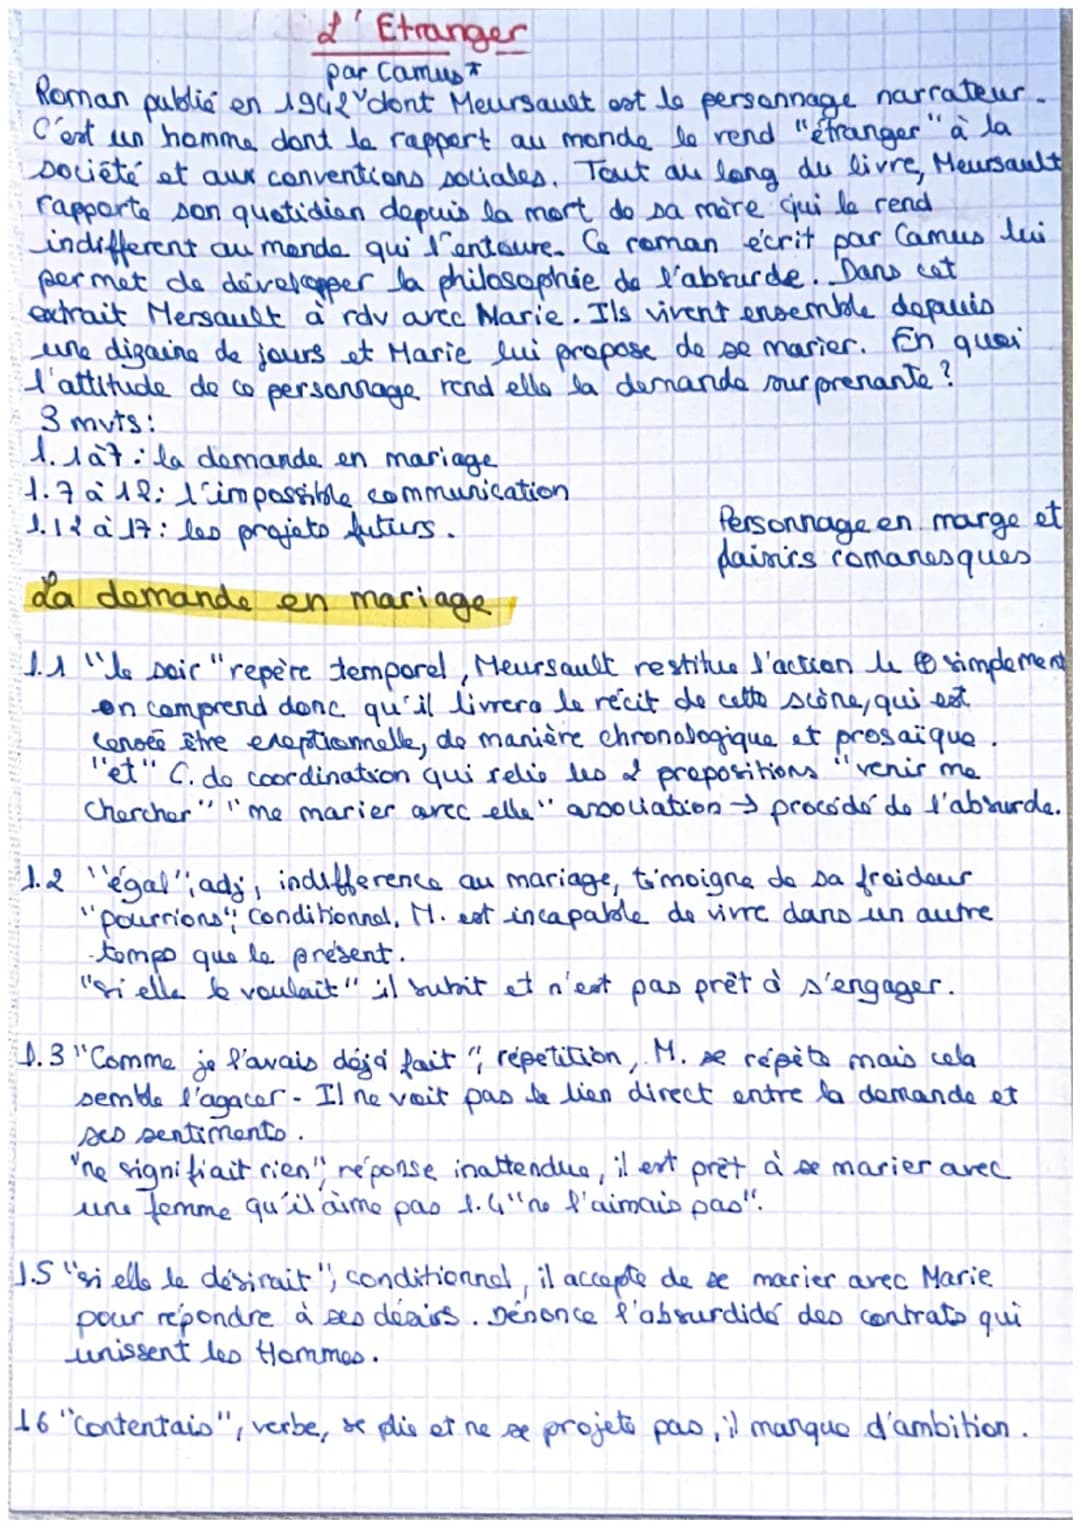 L'Etranger
par Camus*
Roman publié en 1942 dont Meursault est le personnage narrateur.
C'est un homme dont le rapport au monde le rend "étranger" à la
société et aux conventions sociales. Tout au long du livre, Meursault
rapporte son quotidien depuis la mort de sa mère qui le rend
indifferent au monde qui l'entoure. Ce roman écrit par Camus lui
permet de développer la philosophie de l'absurde. Dans cet
extrait Mersault à rdv avec Marie. Ils vivent ensemble depuis
une dizaine de jours et Marie lui propose de se marier. En quoi
l'attitude de ce personnage rend elle la demande surprenante ?
3 mvts :
l. 1 à 7 : la demande en mariage
l. 7 à 12 : l'impossible communication
l. 12 à 17 : les projets futurs.
Personnage en marge et
plaisirs romanesques
La demande en mariage
l.1 "le soir" repère temporel, Meursault restitue l'action le ⊕ simplement
on comprend donc qu'il livrera le récit de cette scène, qui est
censée être exeptionnelle, de manière chronologique et prosaïque.
"et" C. de coordination qui relie les 2 propositions "venir me
chercher" "me marier avec elle" association → procédé de l'absurde.
l.2 "égal", adj, indifference au mariage, témoigne de sa froideur
"pourrions", conditionnel, M. est incapable de vivre dans un autre
temps que le présent.
"si elle le voulait" il subit et n'est pas prêt à s'engager.
l.3 "Comme je l'avais déjà fait", répétition, M. se répète mais cela
semble l'agacer. Il ne voit pas le lien direct entre la demande et
ses sentiments.
"ne signifiait rien", réponse inattendue, il est prêt à se marier avec
une femme qu'il aime pas l.4 "ne l'aimais pas".
l.5 "si elle le désirait", conditionnel, il accepte de se marier avec Marie
pour répondre à ses désirs. Dénonce l'absurdidé des contrats qui
unissent les Hommes.
l6 "contentais", verbe, se plie et ne se projete pas, il manque d'ambition.